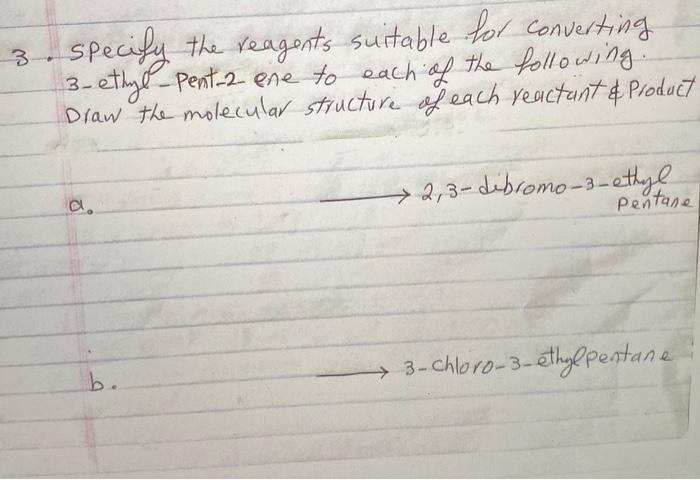 3. Specify the reagents suitable for converting
3-ethyl-pent-2 ene to each of the following.
Draw the molecular structure of each reactant & Product
a. → 2,3-dibromo-3-ethyl
pentane
b. → 3-chloro-3-ethylpentane